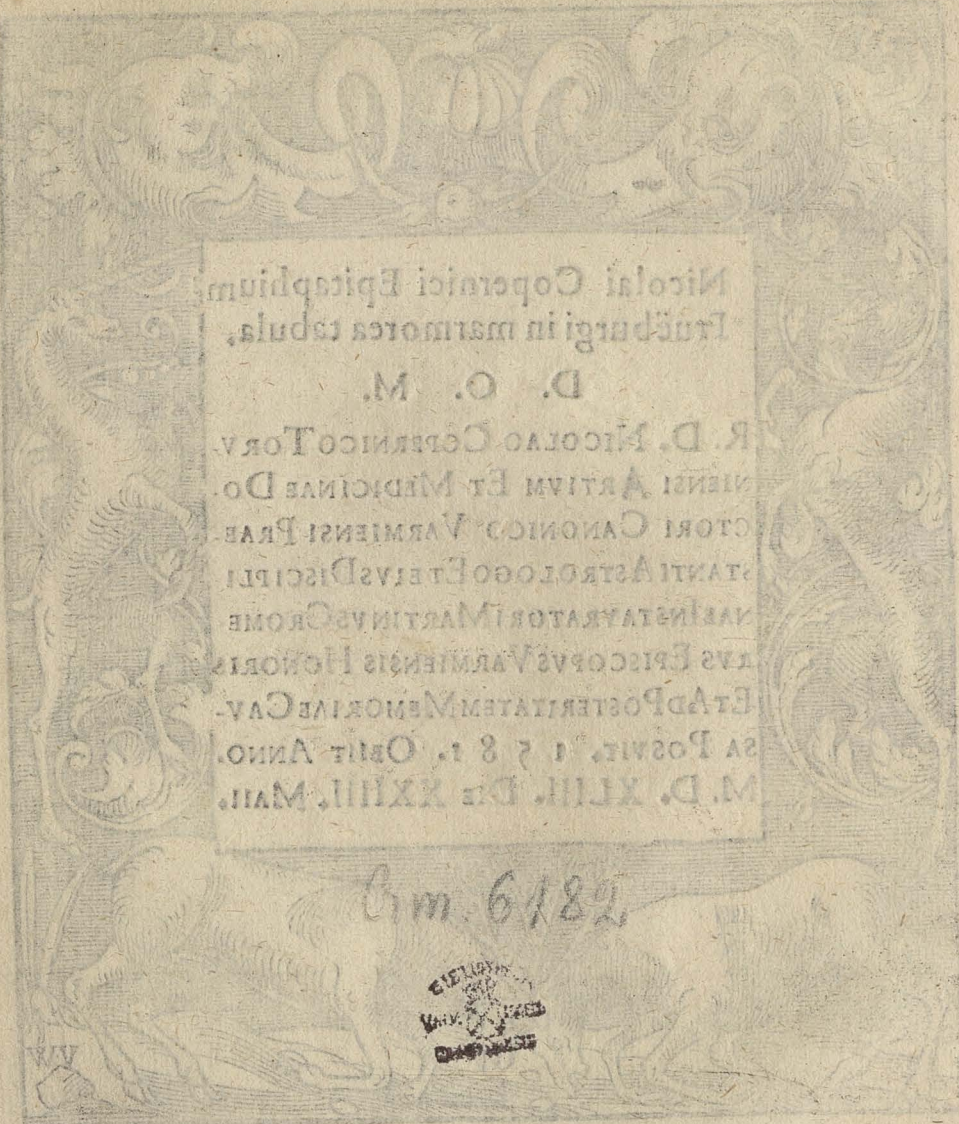 Nicolai Copernici Epitaphium
Frueburgi in marmorea tabula,
D. O. M.
R. D. NICOLAO COPERNICO TORV-
NIENSI ARTIVM ET MEDICINAE DO-
CTORI CANONICO VARMIENSI PRAE-
STANTI ASTROLOGO ET EIVS DISCIPLI
NAE INSTAVRATORI MARTINVS CROME
RVS EPISCOPVS VARMIENSIS HONORIS
ET AD POSTERITATEM MEMORIAE CAV-
SA POSVIT. 1581. OBIIT ANNO.
M. D. XLIII. DIE XXIIII. MAII.
Cim. 6182